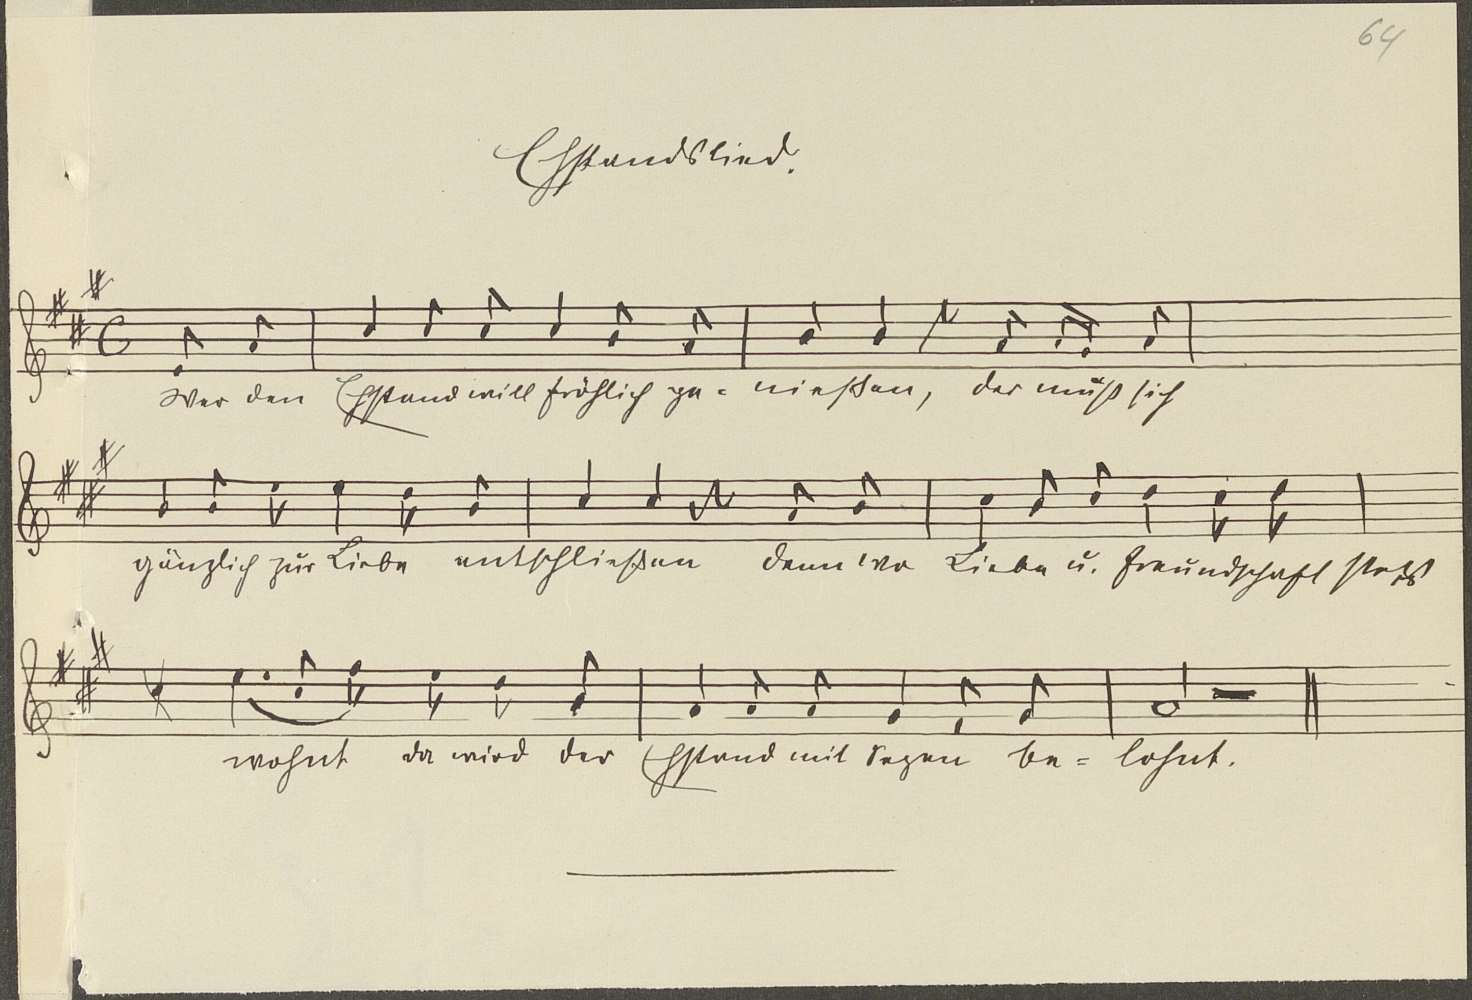 64
Ehstandslied.
Wer den Ehstand will fröhlich ge- nießen, der muß sich
gänzlich zur Liebe entschließen denn wo Liebe u. Freundschaft stets
wohnt da wird der Ehstand mit Segen be- lohnt.